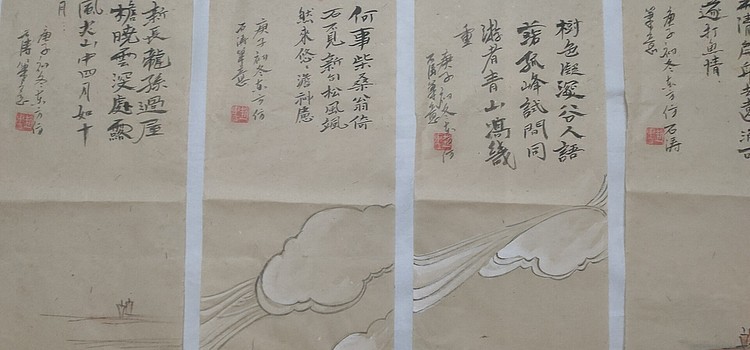 逐打魚情
庚子初冬东方仿石涛
筆意
樹色凝深谷人語
蕩孤峰試問同
游者青山寫幾
重
庚子初冬东方仿
石涛筆意
何事柴桑翁倚
石覓新句松風颯
然来悠悠澹科慮
庚子初冬东方仿
石涛筆意
新長龍孫過屋
檐曉雲深處露
風尖山中四月如十
月
庚子初冬东方仿
石涛筆意